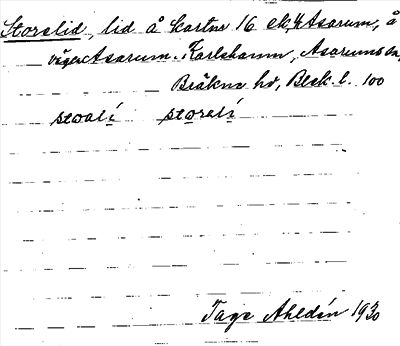 Storslid, lid å kartur 16 ek, Asarum, å
vägen Asarum-Karlshamn, Asarums sn,
Bräkne hd, Blek. l. 100
stoali storsli
Tage Ahldén 1930